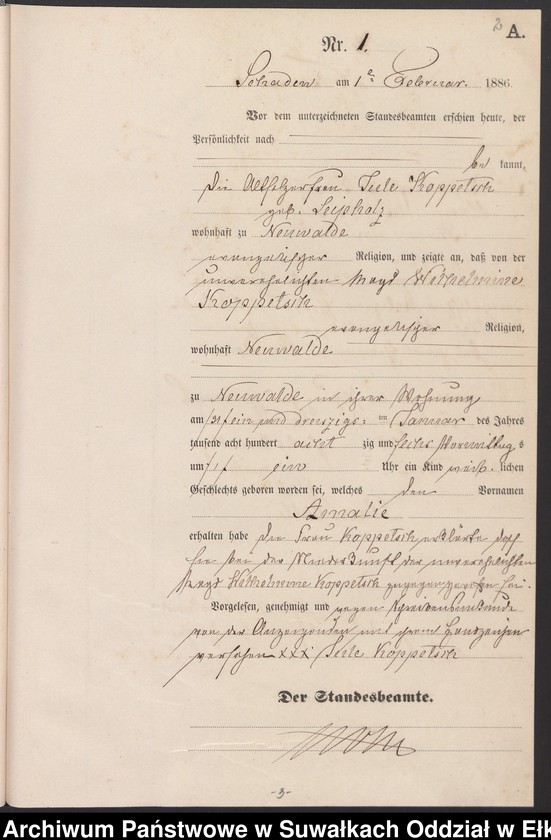 2 A.
Nr. 1.
am 1 Februar. 1886
Vor dem unterzeichneten Standesbeamten erschien heute, der
Persönlichkeit nach
be kannt,
die Altsitzerfrau Koppetsch
geb. Leipholz
wohnhaft zu Neuwalde
evangelischer Religion, und zeigte an, daß von der
unverehelichten Magd Wilhelmine
Koppetsch
evangelischer Religion,
wohnhaft Neuwalde
zu Neuwalde in ihrer Wohnung
am /31/ ein und dreizigs: ten Januar des Jahres
tausend acht hundert acht zig und sechs Vormittag s
um /1/ ein Uhr ein Kind weib lichen
Geschlechts geboren worden sei, welches den Vornamen
Amalie
erhalten habe die Frau Koppetsch erklärte daß
sie bei der Niederkunft der unverehelichten
Magd Wilhelmine Koppetsch zugegen gewesen sei.
Vorgelesen, genehmigt und wegen Schreibensunkunde
von der Anzeigenden mit ihrem Handzeichen
versehen xxx Koppetsch
Der Standesbeamte.
-3-
Archiwum Państwowe w Suwałkach Oddział w Ełk